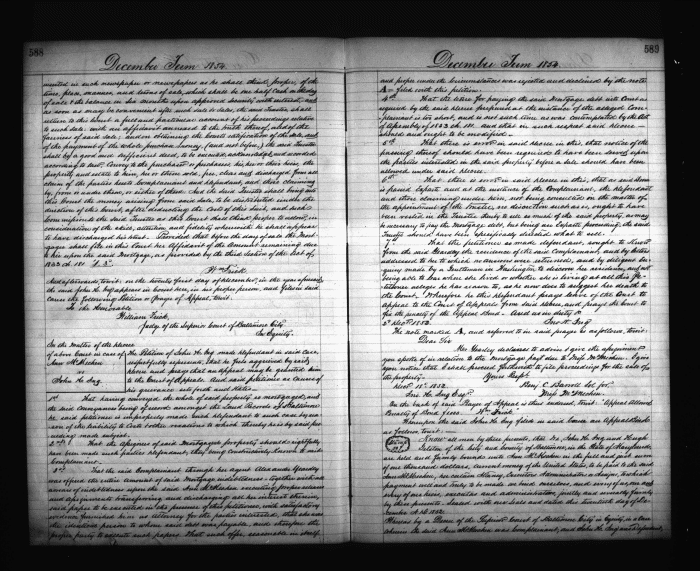 588
December Term 1854.
verted in such newspaper or newspapers as he shall think proper, of the
time, place, manner, and terms of sale, which shall be one half cash on the day
of sale & the balance in six months upon approved security with interest, and
as soon as may be convenient after such sale or sales, the said Trustee, shall
return to this Court a full and particular account of his proceedings relative
to such sale; with an affidavit annexed to the truth thereof, and of the
fairness of said sale; and on obtaining the Courts ratification of the sale, and
of the payment of the whole purchase money, (and not before,) the said Trustee
shall by a good and sufficient deed, to be executed, acknowledged and recorded
according to law, convey to the purchaser or purchasers, his, her or their heirs, the
property and estate to him, her or them sold, free, clear and discharged from all
claim of the parties hereto Complainant and defendant, and those claiming
by, from or under them, or either of them. And the said Trustee shall bring into
this Court the money arising from said sale, to be distributed under the
direction of this Court, after deducting the Costs of this suit, and such
Commissions to the said Trustee as this Court shall think proper to allow, in
consideration of the skill, attention, and fidelity wherewith he shall appear
to have discharged his trust. Provided that before the day of sale the Mort-
gagee shall file in this Court her Affidavit of the Amount remaining due
to her upon the said Mortgage, as provided by the third section of the Act of
1833 Ch. 181
Wm Frick
And afterwards to wit: on the twenty first day of November in the year aforesaid
the said John H. Ing appears in Court here, in his proper person, and files in said
cause the following Petition & Prayer of Appeal, to wit:
To the Honorable
William Frick,
Judge of the Superior Court of Baltimore City
In Equity.
In the matter of the
of above Court in case of
Ann McMechen
vs
John H. Ing
The Petition of John H. Ing made defendant in said case,
respectfully represents, that he feels aggrieved by said
and prays that an appeal may be granted him
to the Court of Appeals. And said petitioner as causes of
his grievance sets forth and states
1st That having conveyed the whole of said property is mortgaged, and
the said conveyance being of record amongst the Land Records of Baltimore
he said petitioner is improperly made defendant to said case by rea-
son of the liability to Costs & other vexations to which thereby he is by said pro-
ceeding made subject.
2nd That the Assignee of said Mortgaged property should rightfully
have been made such parties defendant, they being constructively known to said
Complainant.
3rd That the said Complainant through her agent Alexander Yearley
was offered the entire amount of said Mortgage indebtedness, together with and
said paper to be executed in the presence of this petitioner, with satisfactory
589
December Term 1854.
and proper under the circumstances was rejected and declined by the note
A or filed with this petition.
4th That the time for paying the said Mortgage debt into Court as
required by the said decree prepared at the instance of the alleged Com-
plainant is too short, and is not such time as was contemplated by the Act
of Assembly of 1833 Ch. 181. and that in such respect said decree
should and ought to be modified.
5th That there is error in said decree in this, that notice of the
passing thereof should have been required to have been served upon
the parties interested in the said property before a sale should have been
allowed under said decree.
6th That there is error in said decree in this, that as said Case
is proved Exparte and at the instance of the Complainant, the defendant
and others claiming under him, not being consulted on the matter of
the appointment of the Trustee, no discretion such as is, ought to have
been vested in the Trustee thereby to sell as much of the said property, as may
be necessary to pay the Mortgage debt, but being an Exparte proceeding, the said
Trustee should have been specifically directed what to sell.
7th That the petitioner as made defendant, sought to elicit
from the said Yearley the residence of the said Complainant, and by letters
addressed to her to which no answers were returned, and by diligent in-
quiry made by a Gentleman in Washington to discover her residence, and not
being able to learn where she lived or whether she is living at all this Pe-
titioner alleges he has reason to, as he now does to suggest her death to
the Court. Wherefore he this defendant prays leave of the Court to
appeal to the Court of Appeals from said decree, and prays the Court to
fix the penalty of the Appeal Bond. And as in duty &c
Jno. H. Ing
The note marked A, and referred to in said prayer is as follows, to wit:
Dear Sir
Mr Yearley declines to advise I give the
you spoke of in relation to the mortgage past due to Miss McMechen. I give
you notice that I shall proceed forthwith to file proceedings for the sale of
the property.
Yours Respy.
Novr 15th 1852.
Benj. C. Barroll Sol. for
Jno. H. Ing Esqr.
Miss McMechen.
On the back of said Prayer of Appeal is thus endorsed, to wit: "Appeal allowed
Penalty of Bond $1000. Wm Frick".
Whereupon the said John H. Ing filed in said Cause an Appeal Bond
as follows, to wit:
Know all men by these presents, that We, John H. Ing and Hugh
Gelston of the City and County of Baltimore, in the State of Maryland,
are held and firmly bounds unto Ann McMechen in the full and just sum
of one thousand dollars, current money of the United States, to be paid to the said
Ann McMechen, her certain Attorney, Executors, Administrators or Assigns, to which
payment well and truly to be made, we bind ourselves, and every of us, our and
every of our heirs, executors and administrators, jointly and severally firmly
by these presents. Sealed with our seals and dated this twentieth day of De-
cember A.D. 1852.
Whereas by a Decree of the Superior Court of Baltimore City in Equity, in a Case
wherein the said Ann McMechen was Complainant, and John H. Ing was defendant,